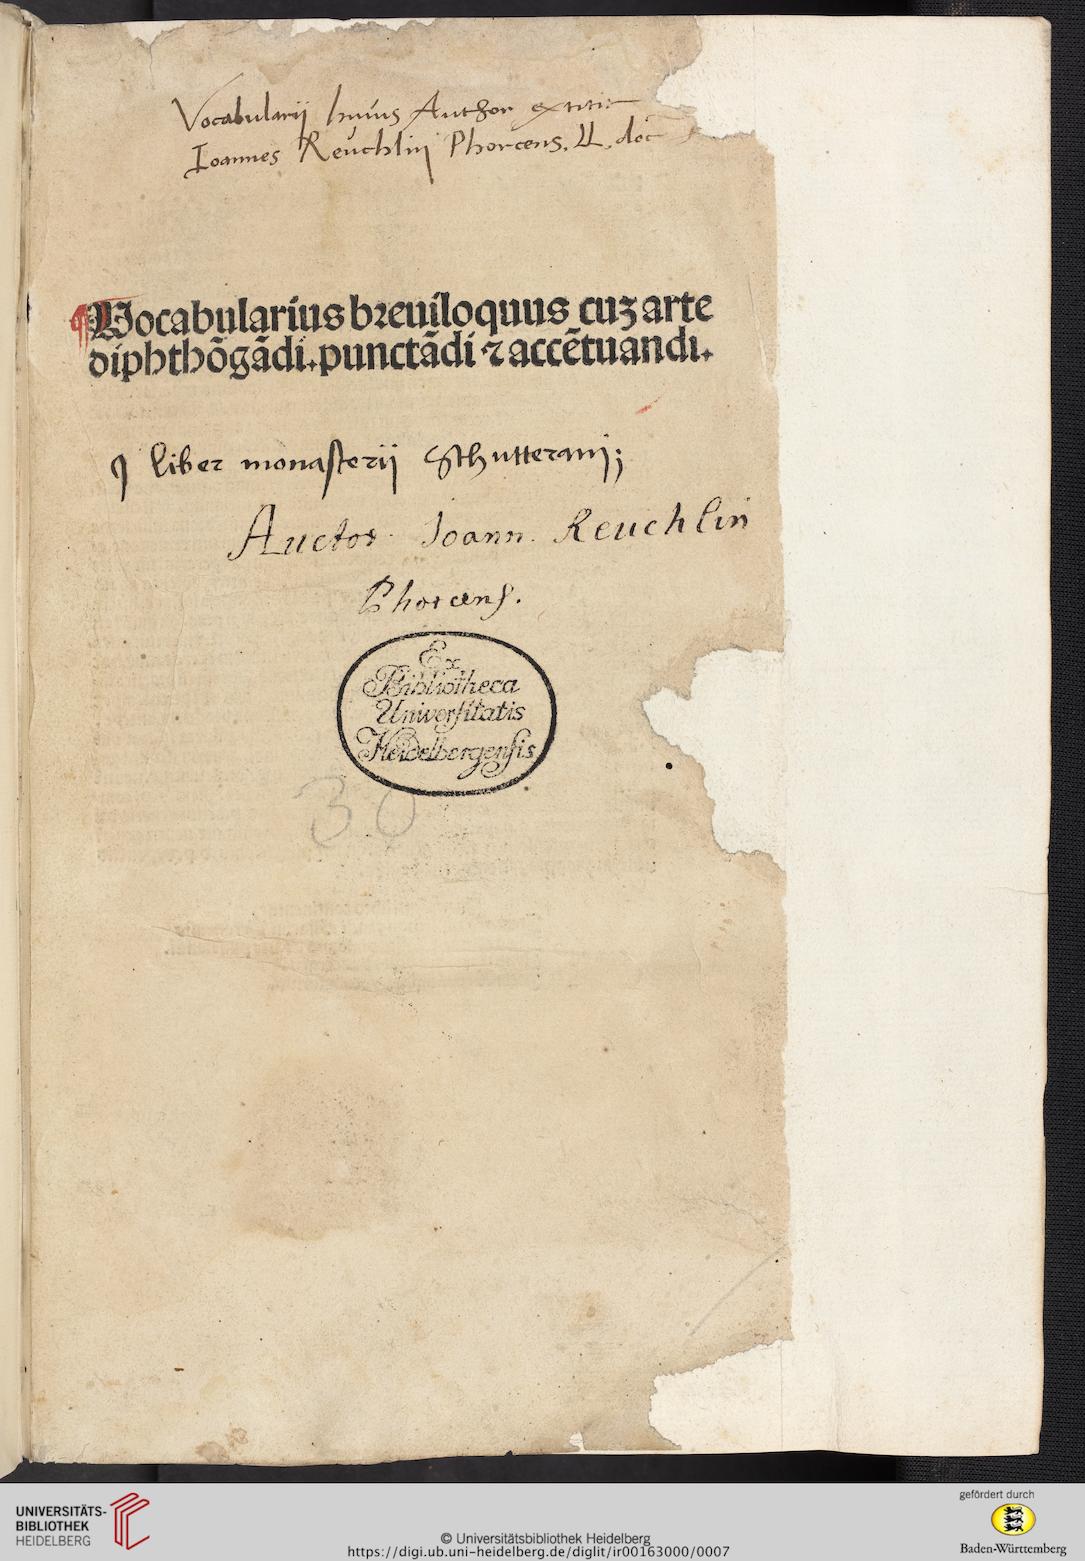 Vocabularij huius Author extitit
Ioannes Reuchlin Phorcens. LL. doc
¶Vocabularius breuiloquus cuꝫ arte
diphthõgãdi. punctãdi ⁊ accẽtuandi.
liber monasterij Schutterani;
Auctor Joann. Reuchlin
Phorcens.
Ex
Bibliotheca
Universitatis
Heidelbergensis
30
UNIVERSITÄTS-
BIBLIOTHEK
HEIDELBERG
© Universitätsbibliothek Heidelberg
https://digi.ub.uni-heidelberg.de/diglit/ir00163000/0007
gefördert durch
Baden-Württemberg